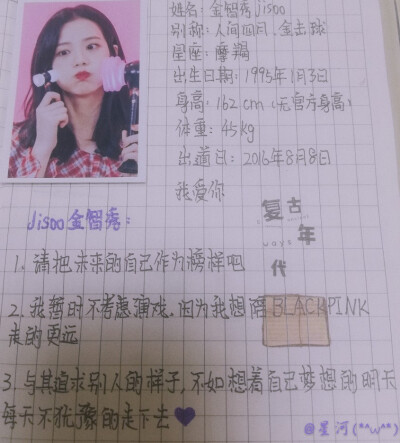 姓名：金智秀jisoo
别称：人间四月、金吉球
星座：摩羯
出生日期：1995年1月3日
身高：162cm（无官方身高）
体重：45kg
出道日：2016年8月8日
我爱你
复古
ways 年
代
Jisoo金智秀：
1. 请把未来的自己作为榜样吧
2. 我暂时不考虑演戏，因为我想陪BLACKPINK
走的更远
3. 与其追求别人的样子，不如想着自己梦想的明天
每天不犹豫的走下去💜
@星河(*^ω^*)